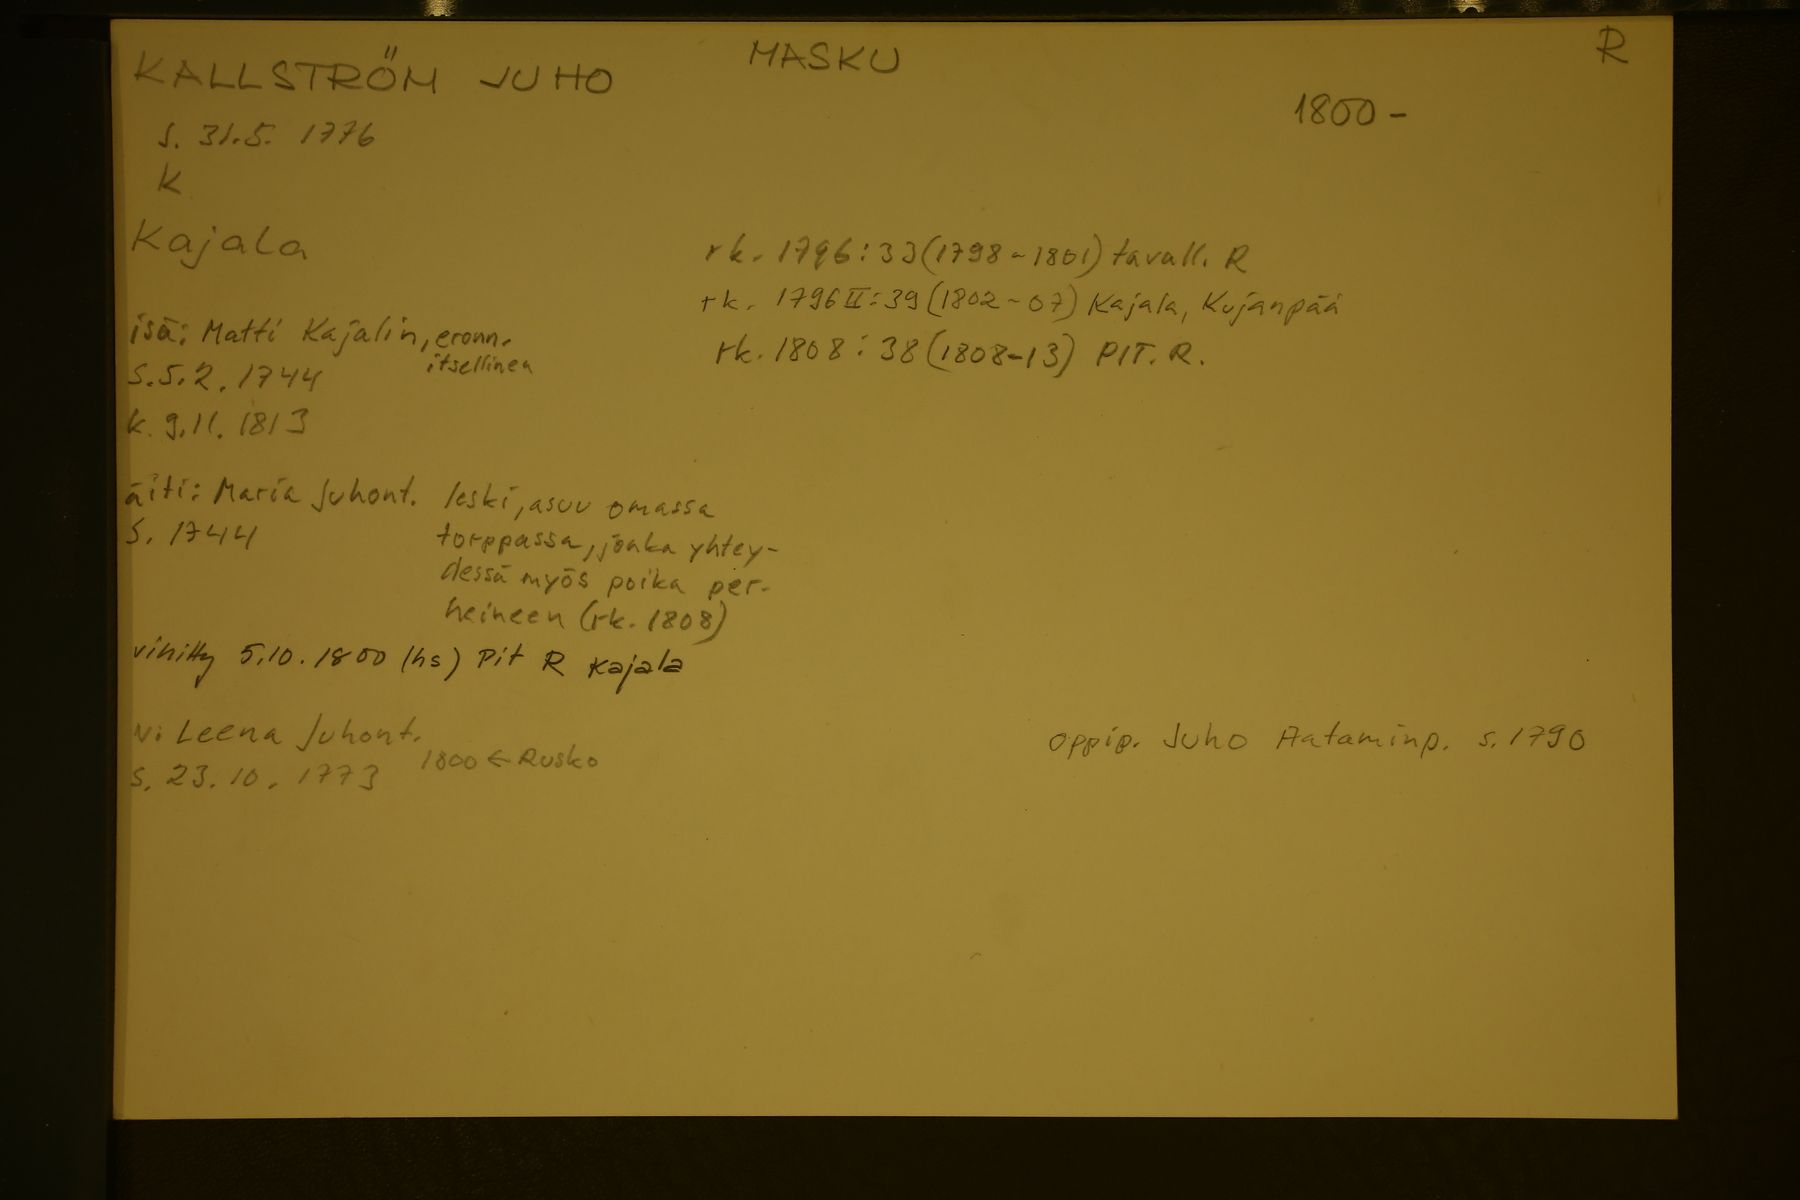 KALLSTRÖM JUHO
MASKU
R
1800 -
s. 31.5. 1776
K
Kajala
rk. 1796:33 (1798-1801) tavall. R
rk. 1796 II:39 (1802-07) Kajala, Kujanpää
rk. 1808:38 (1808-13) PIT. R.
isä: Matti Kajalin, eronn.
itsellinen
s. 5.2. 1744
k. 9.11. 1813
äiti: Maria Juhont. leski, asuu omassa
s. 1744
torppassa, jonka yhtey-
dessä myös poika per-
heineen (rk. 1808)
vihitty 5.10.1800 (hs) Pit R Kajala
v: Leena Juhont.
1800 ← Rusko
s. 23.10. 1773
oppip. Juho Aataminp. s. 1790